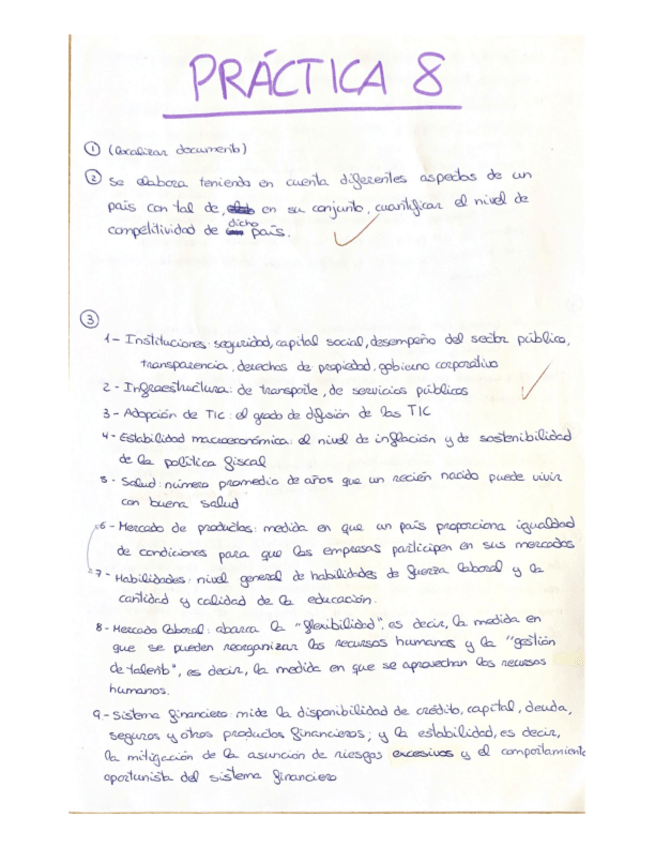 PRÁCTICA 8
① (localizar documento)
② Se elabora teniendo en cuenta diferentes aspectos de un
país con tal de, en su conjunto, cuantificar el nivel de
competitividad de dicho país.
③
1- Instituciones: seguridad, capital social, desempeño del sector público,
transparencia, derechos de propiedad, gobierno corporativo
2- Infraestructura: de transporte, de servicios públicos
3- Adopción de TIC: el grado de difusión de las TIC
4- Estabilidad macroeconómica: el nivel de inflación y de sostenibilidad
de la política fiscal
5- Salud: número promedio de años que un recién nacido puede vivir
con buena salud
6- Mercado de productos: medida en que un país proporciona igualdad
de condiciones para que las empresas participen en sus mercados
7- Habilidades: nivel general de habilidades de fuerza laboral y la
cantidad y calidad de la educación.
8- Mercado laboral: abarca la "flexibilidad", es decir, la medida en
que se pueden reorganizar los recursos humanos y la "gestión
de talento", es decir, la medida en que se aprovechan los recursos
humanos.
9- Sistema financiero: mide la disponibilidad de crédito, capital, deuda,
seguros y otros productos financieros; y la estabilidad, es decir,
la mitigación de la asunción de riesgos excesivos y el comportamiento
oportunista del sistema financiero